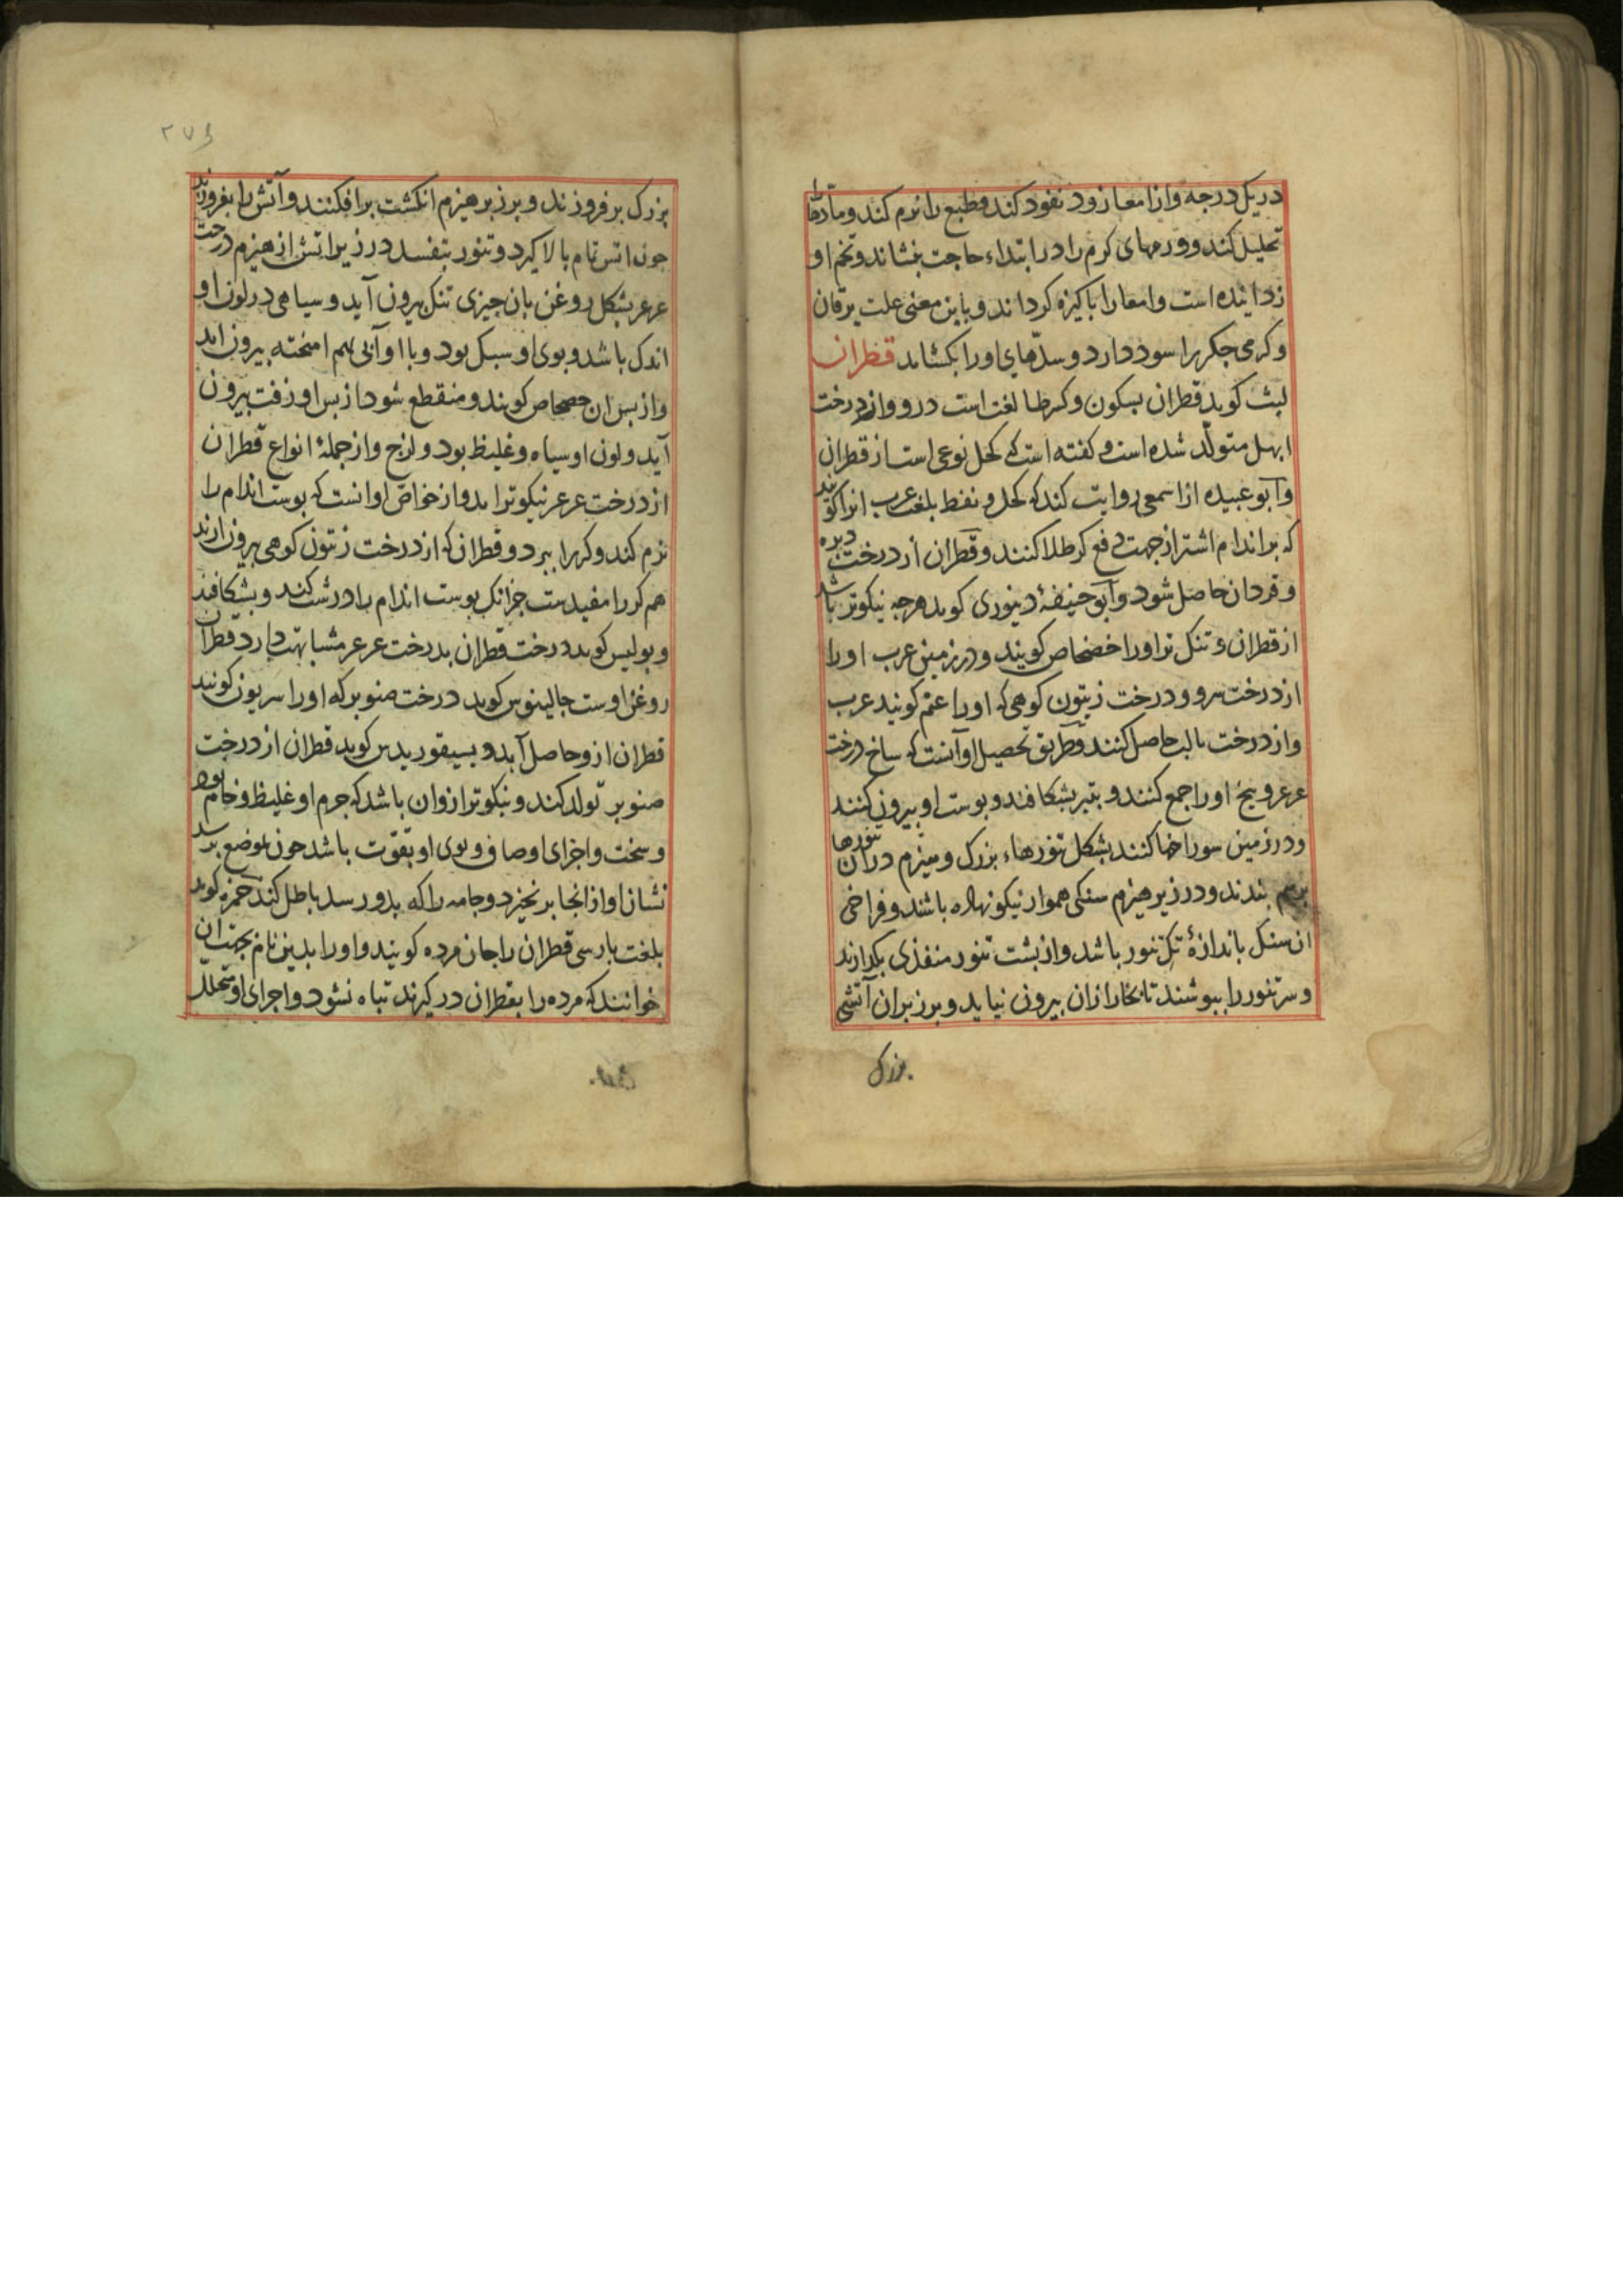 در یک درجه و از امعا زود نفود کند و طبع را نرم کند و مادتها
تحلیل کند و ورمهای کرم را در ابتداء حاجت بنشاند و تخم او
زداینده است و امعا را باکیزه کرداند و باین معنی علت یرقان
و کرمی جکر را سود دارد و سدّهای او را بکشاید قطران
لیث کوید قطران بسکون و کسر طا لغت است درو و از درخت
ابهل متولّد شده است و کفته است که کحل نوعی است از قطران
و ابو عبیده از اسمعی روایت کند که کحل و نفط بلغت عرب انرا کویند
که بر اندام اشتر از جهت دفع کر طلا کنند و قطران از درخت دبره
و قردان حاصل شود و ابو حنیفۀ دینوری کوید هرجه نیکوتر باشد
از قطران و تنک تر او را خضخاص کویند و در زمین عرب او را
از درخت سرو و درخت زیتون کوهی که او را عتم کویند عرب
و از درخت تالب حاصل کنند و طریق تحصیل او آنست که ساخ درخت
عرعر و بیخ او را جمع کنند و بتبر بشکافند و بوست او بیرون کنند
و در زمین سوراخها کنند بشکل تنورهاء بزرک و هیزم در ان تنورها
برهم بندند و در زیر هیزم سنکی هموار نیکو نهاده باشند و فراخی
ان سنک باندازۀ تک تنور باشد و از بشت تنور منفذی بکدارند
و سر تنور را ببوشند تا بخار ازان بیرون نیاید و برزبر ان آتشی
بزرک
۲۷۶
بزرک بر فروزند و برزبر هیزم انکشت برافکنند و آتش را بفروزند
جون اتش تمام بالا کیرد و تنور بتفسد در زیر اتش از هیزم درخت
عرعر بشکل روغن بان جیزی تنک بیرون آید و سیاهی در لون او
اندک باشد و بوی او سبک بود و با او آبی بهم امیخته بیرون اید
و از بس ان خضخاص کویند و منقطع شود از بس او زفت بیرون
آید و لون او سیاه و غلیظ بود و لزج و از جملۀ انواع قطران
از درخت عرعر نیکوتر اید و از خواصّ او انست که بوست اندام را
نرم کند و کر را ببرد و قطران که از درخت زیتون کوهی بیرون ارند
هم کر را مفیدست جز انک بوست اندام را درشت کند و بشکافند
و بولس کوید درخت قطران بدرخت عرعر مشابهت دارد قطران
روغن اوست جالینوس کوید درخت صنوبر که او را سریون کویند
قطران ازو حاصل آید و بسیقوریدس کوید قطران از درخت
صنوبر تولد کند و نیکوتر ازوان باشد که جرم او غلیظ و خام بود
و سخت و اجزای او صاف و بوی او بقوّت باشد جون بموضع برسد
نشان او از انجا بر نخیزد و جامه را که بدو رسد باطل کند حمزه کوید
بلغت بارسی قطران را جان مرده کویند و او را بدین نام بجهت ان
خوانند که مرده را بقطران در کیرند تباه نشود و اجزای او متحلل